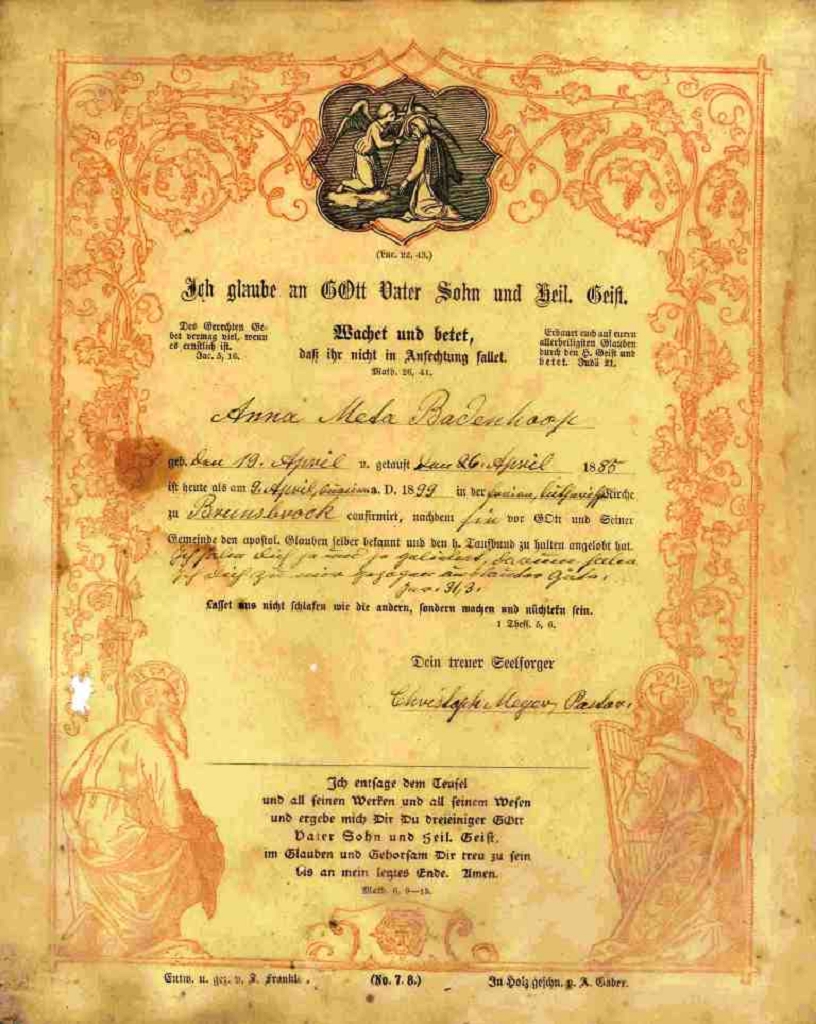 (Luc. 22, 43.)
Ich glaube an GOtt Vater Sohn und Heil. Geist.
Des Gerechten Ge-
bet vermag viel, wenn
es ernstlich ist.
Jac. 5, 16.
Wachet und betet,
daß ihr nicht in Anfechtung fallet.
Math. 26, 41.
Erbauet euch auf euren
allerheiligsten Glauben
durch den H. Geist und
betet. Judä 21.
Anna Meta Badenhoop
geb. den 19. April u. getauft den 26. April 1885
ist heute als am 9. April, a. D. 1899 in der Kirche
zu Brunsbrock confirmirt, nachdem sie vor GOtt und Seiner
Gemeinde den apostol. Glauben selber bekannt und den h. Taufbund zu halten angelobt hat.
Ich habe dich je und je geliebet, darum habe
ich dich zu mir gezogen aus lauter Güte.
Jer. 31,3.
Lasset uns nicht schlafen wie die andern, sondern wachen und nüchtern sein.
1 Thess. 5, 6.
Dein treuer Seelsorger
Christoph Meyer, Pastor.
Ich entsage dem Teufel
und all seinen Werken und all seinem Wesen
und ergebe mich Dir Du dreieiniger GOtt
Vater Sohn und Heil. Geist,
im Glauben und Gehorsam Dir treu zu sein
bis an mein letztes Ende. Amen.
Math. 6, 9—13.
Entw. u. gez. v. J. Frankl. (No. 7. 8.) In Holz geschn. v. A. Gaber.